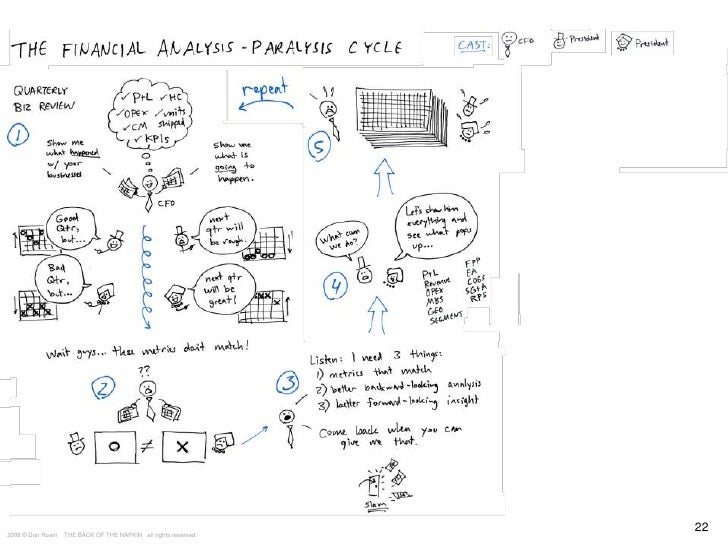 THE FINANCIAL ANALYSIS-PARALYSIS CYCLE
CAST:
CFO
President
President
QUARTERLY
BIZ REVIEW
P+L ✓ HC
✓ OPEX ✓ units
✓ CM shipped
✓ KPIs
repeat
1
Show me
what happened
w/ your
businesses
Show me
what is
going to
happen.
CFO
Good
Qtr,
but...
next
qtr will
be rough.
Bad
Qtr,
but...
next qtr
will be
great!
Wait guys... these metrics don't match!
??
2
O ≠ X
3
Listen: I need 3 things:
1) metrics that match
2) better backward-looking analysis
3) better forward-looking insight
Come back when you can
give me that.
Slam
4
What can
we do?
Let's show him
everything and
see what pops
up...
P+L
Revenue
OPEX
MBS
GEO
SEGMENT
FPP
EA
COGS
SG+A
RPS
5
2008 © Dan Roam THE BACK OF THE NAPKIN all rights reserved
22